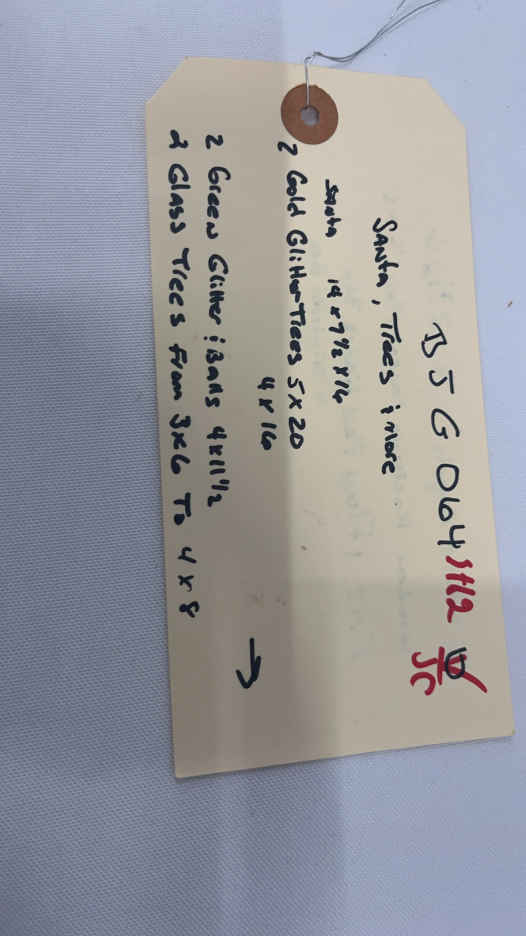 BJG 064 SH2
JC
Santa, Trees & More
Santa 14 x 7½ x 16
2 Gold Glitter Trees 5 x 20
4 x 16
2 Green Glitter & Balls 4 x 11½
2 Glass Trees From 3x6 To 4 x 8
→